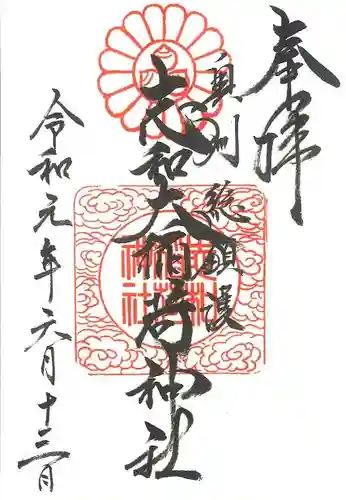 奉拝
奥州 総鎮護
志和大稲荷神社
令和元年六月十三日